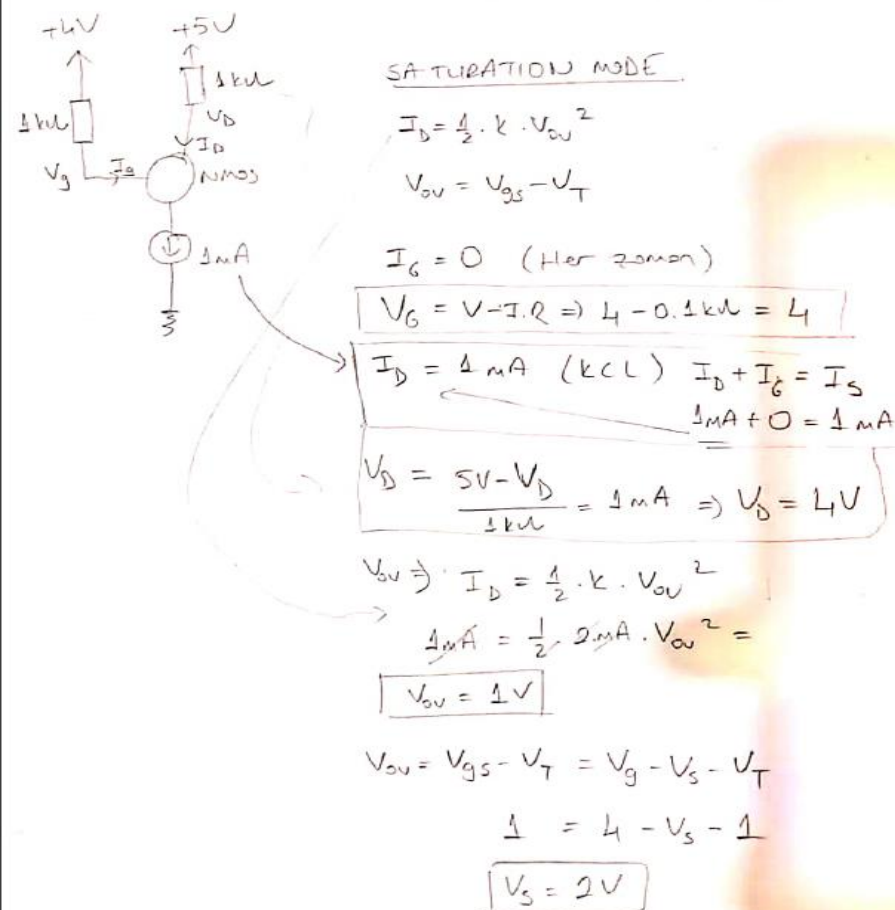 +4V +5V
1kΩ 1kΩ
V_D
I_D
V_g I_g NMOS
1mA
SATURATION MODE
I_D = 1/2 . k . V_ov²
V_ov = V_gs - V_T
I_G = 0 (Her zaman)
V_G = V - I.R => 4 - 0.1kΩ = 4
I_D = 1mA (KCL) I_D + I_G = I_S
1mA + 0 = 1mA
V_D = 5V - V_D / 1kΩ = 1mA => V_D = 4V
V_ov => I_D = 1/2 . k . V_ov²
1mA = 1/2 . 2mA . V_ov² =
V_ov = 1V
V_ov = V_gs - V_T = V_g - V_s - V_T
1 = 4 - V_s - 1
V_s = 2V